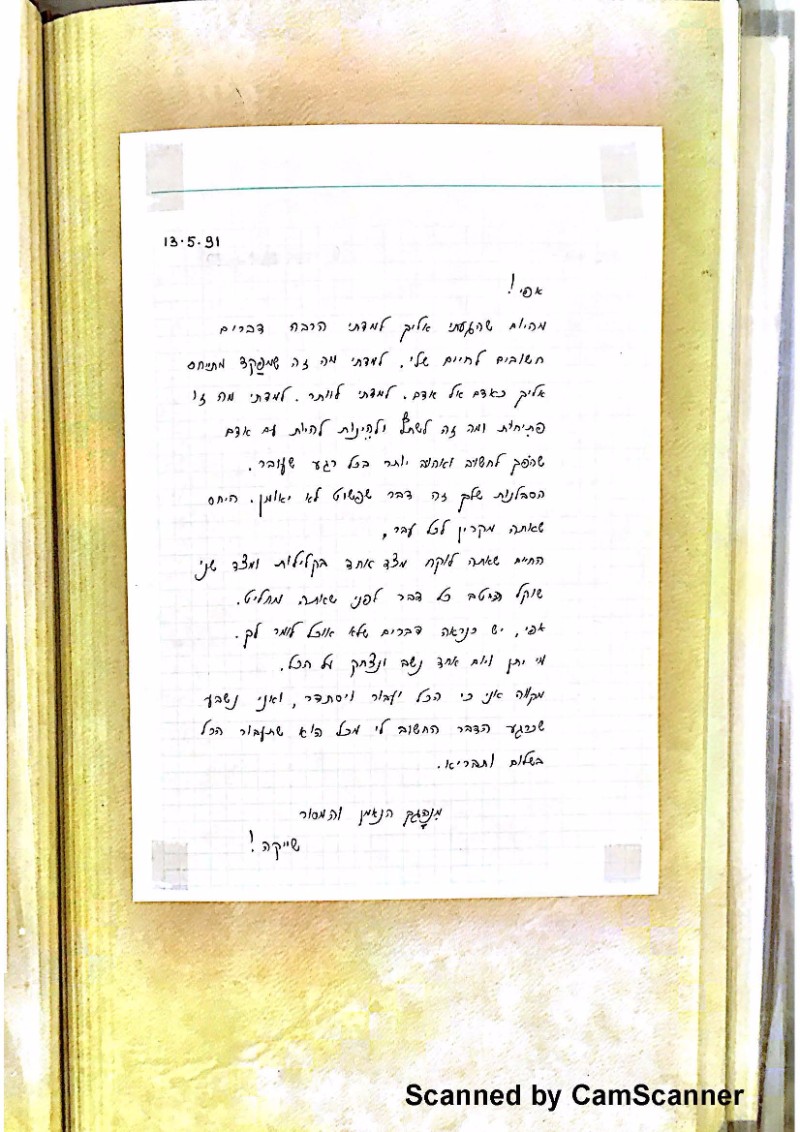 13.5.91
אפי!
מהיום שהגעתי אליך למדתי הרבה דברים
חשובים לחיים שלי. למדתי מה זה שמפַקד מתייחס
אליך כאדם אל אדם. למדתי לוותר. למדתי מה זו
פתיחות ומה זה לשתף ולהינות להיות עם אדם
שהפך לחשוב ואהוב יותר בכל רגע שעובר.
הסבלנות שלך זה דבר שפשוט לא יאומן. היחס
שאתה מקרין לכל עבר,
החיים שאתה לוקח מצד אחד בקלילות ומצד שני
שוקל היטב כל דבר לפני שאתה מחליט.
אפי, יש כנראה דברים שלא אוכל לומר לך.
מי יתן ויום אחד נשב ונצחק על הכל.
מקווה אני כי הכל יעבור ויסתדר, ואני נשבע
שכרגע הדבר החשוב לי מכל הוא שתעבור הכל
בשלום ותבריא.
מִנֶהָגְךָ הנאמן והמסור
שייקה!
Scanned by CamScanner